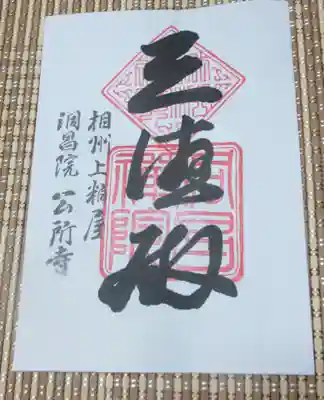 三徳殿
相州上糟屋
洞昌院 公所寺